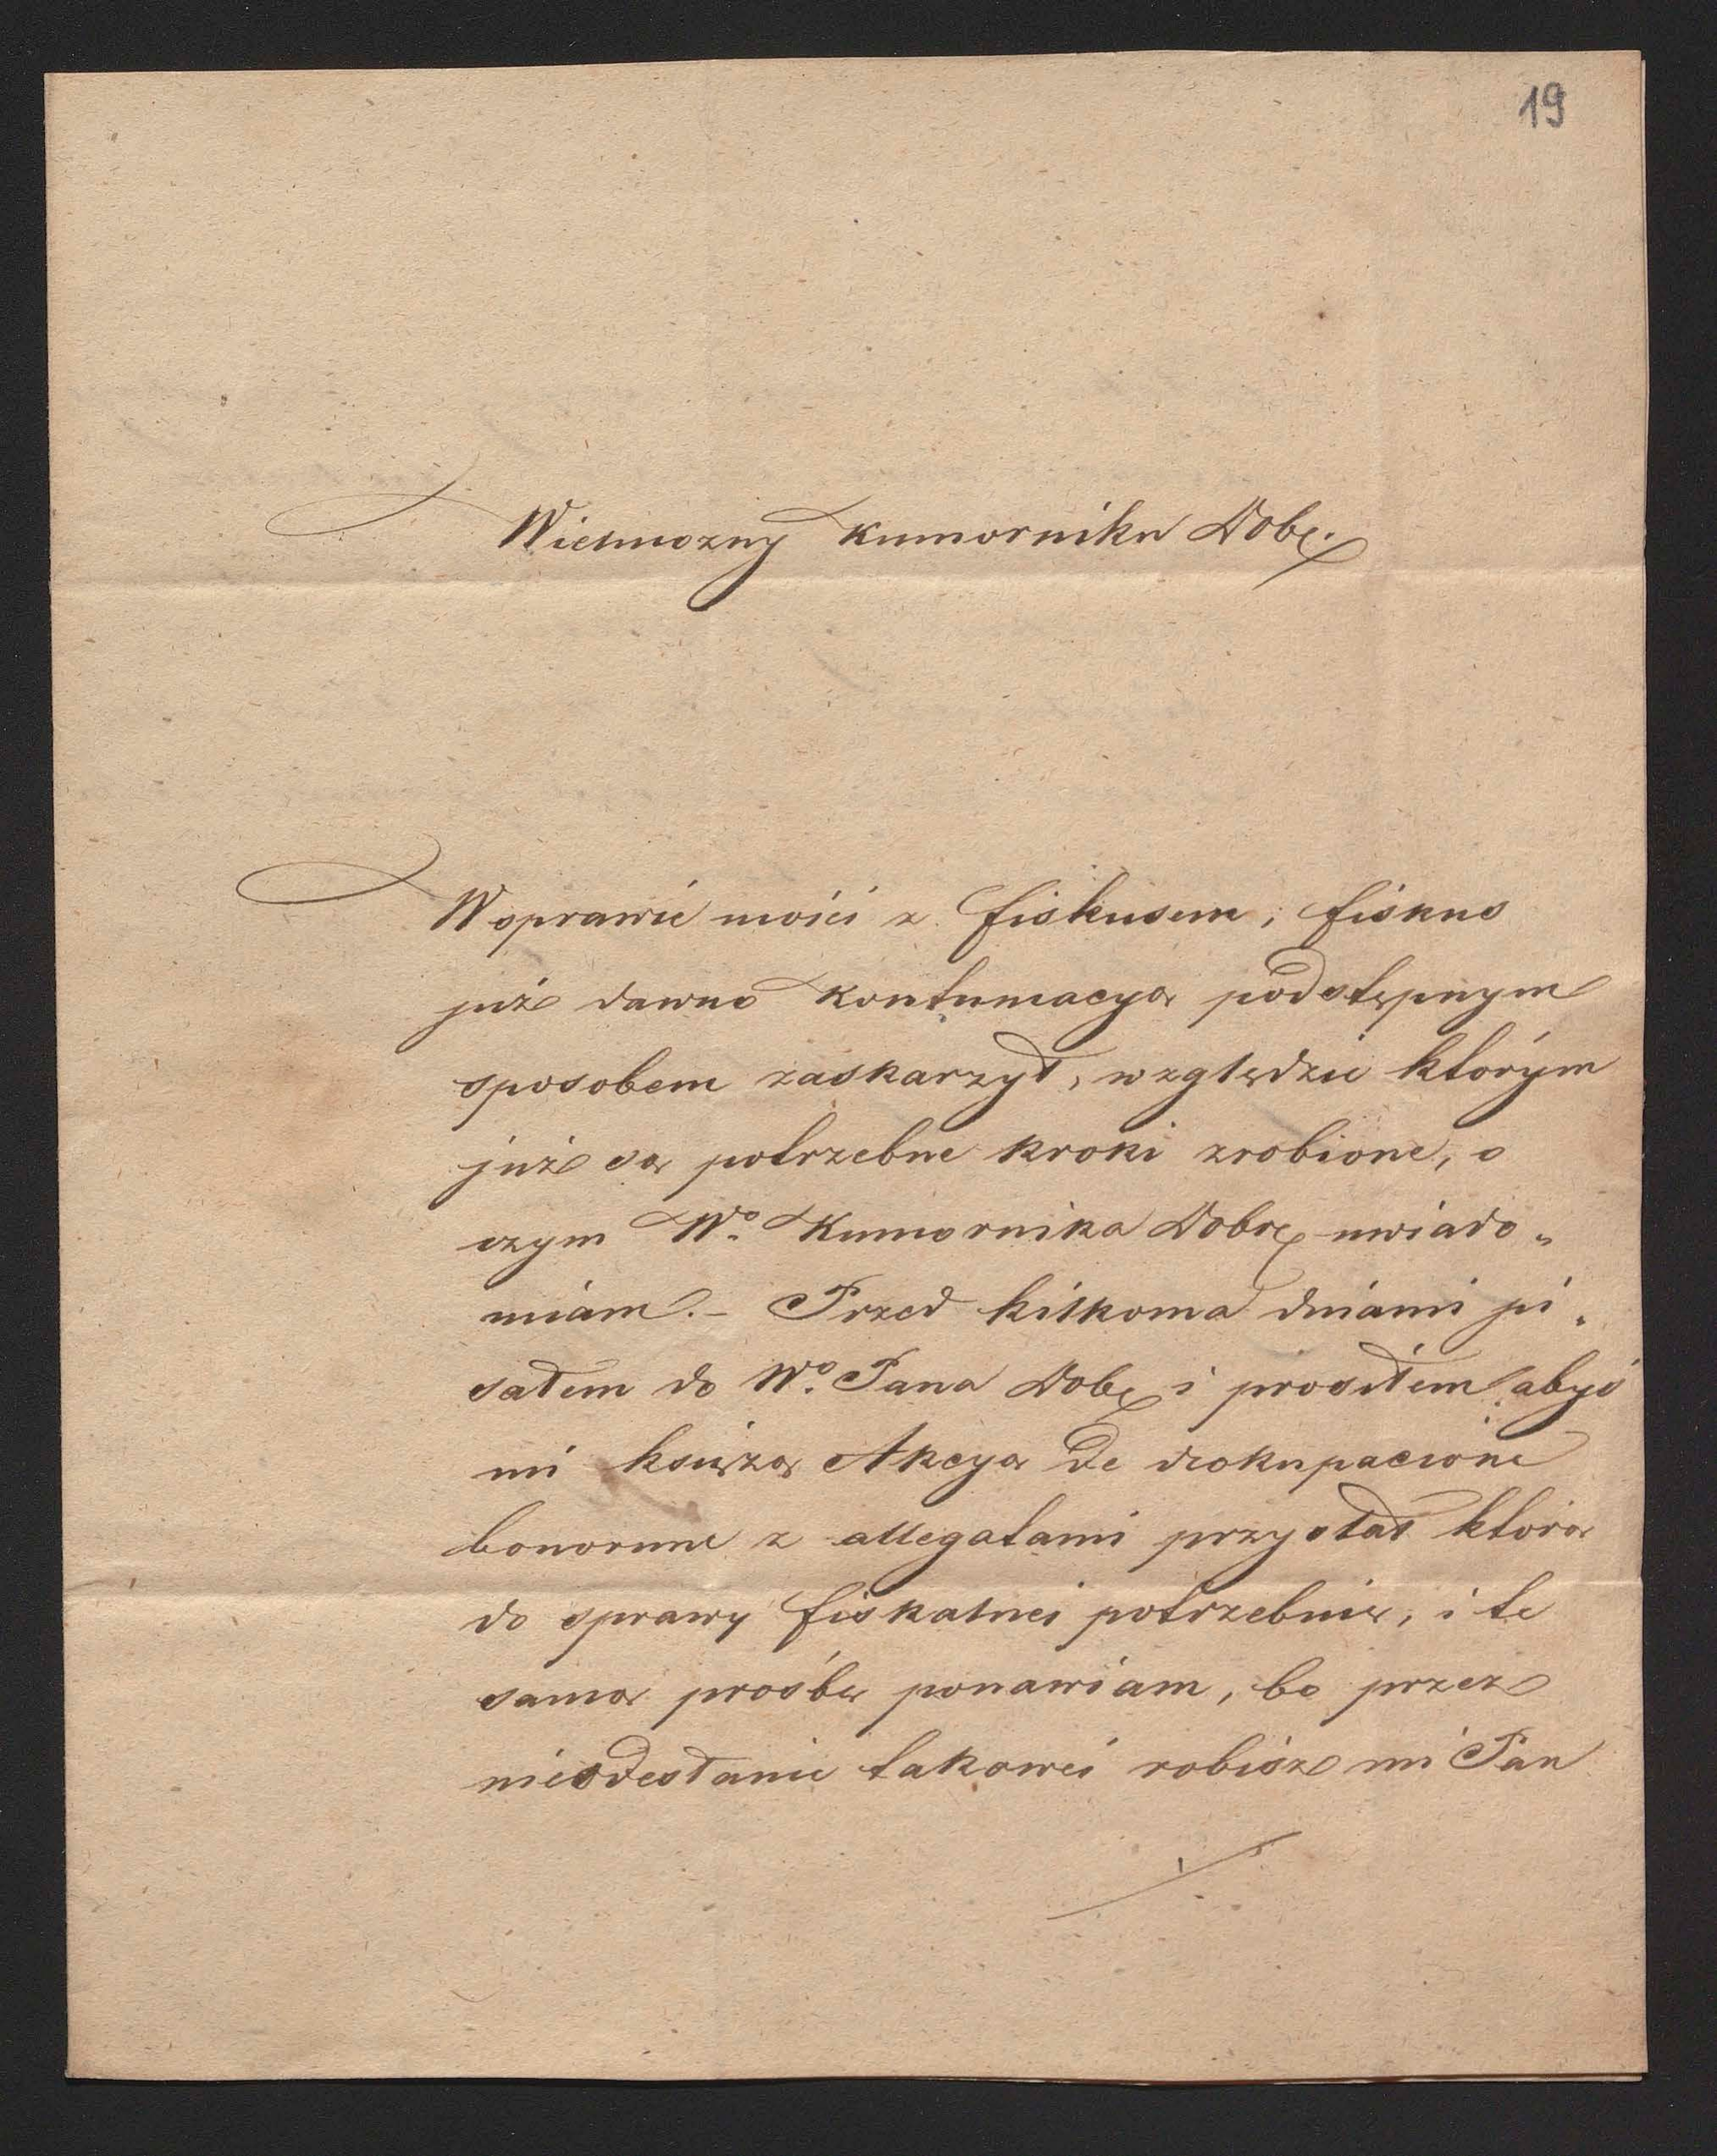 19
Wielmozny Kumorniku Dobr.
W sprawie moiéi z Fiskusem, fiskus
już dawno Kontumacyą podstępnym
sposobem zaskarzył, względzie którym
już są potrzebne kroki zrobione, o
czym Wo. Kumornika Dobr uwiado„
miam. – Przed kilkoma dniami pi„
sałem do Wo. Pana Dobr i prosiłem abyś
mi książą Akcyą De
bonorum z allegatami przysłał którą
do sprawy fiskalnéi potrzebuię, i tę
samą prośbę ponawiam, bo przez
nieodesłanie takowéi robisz mi Pan